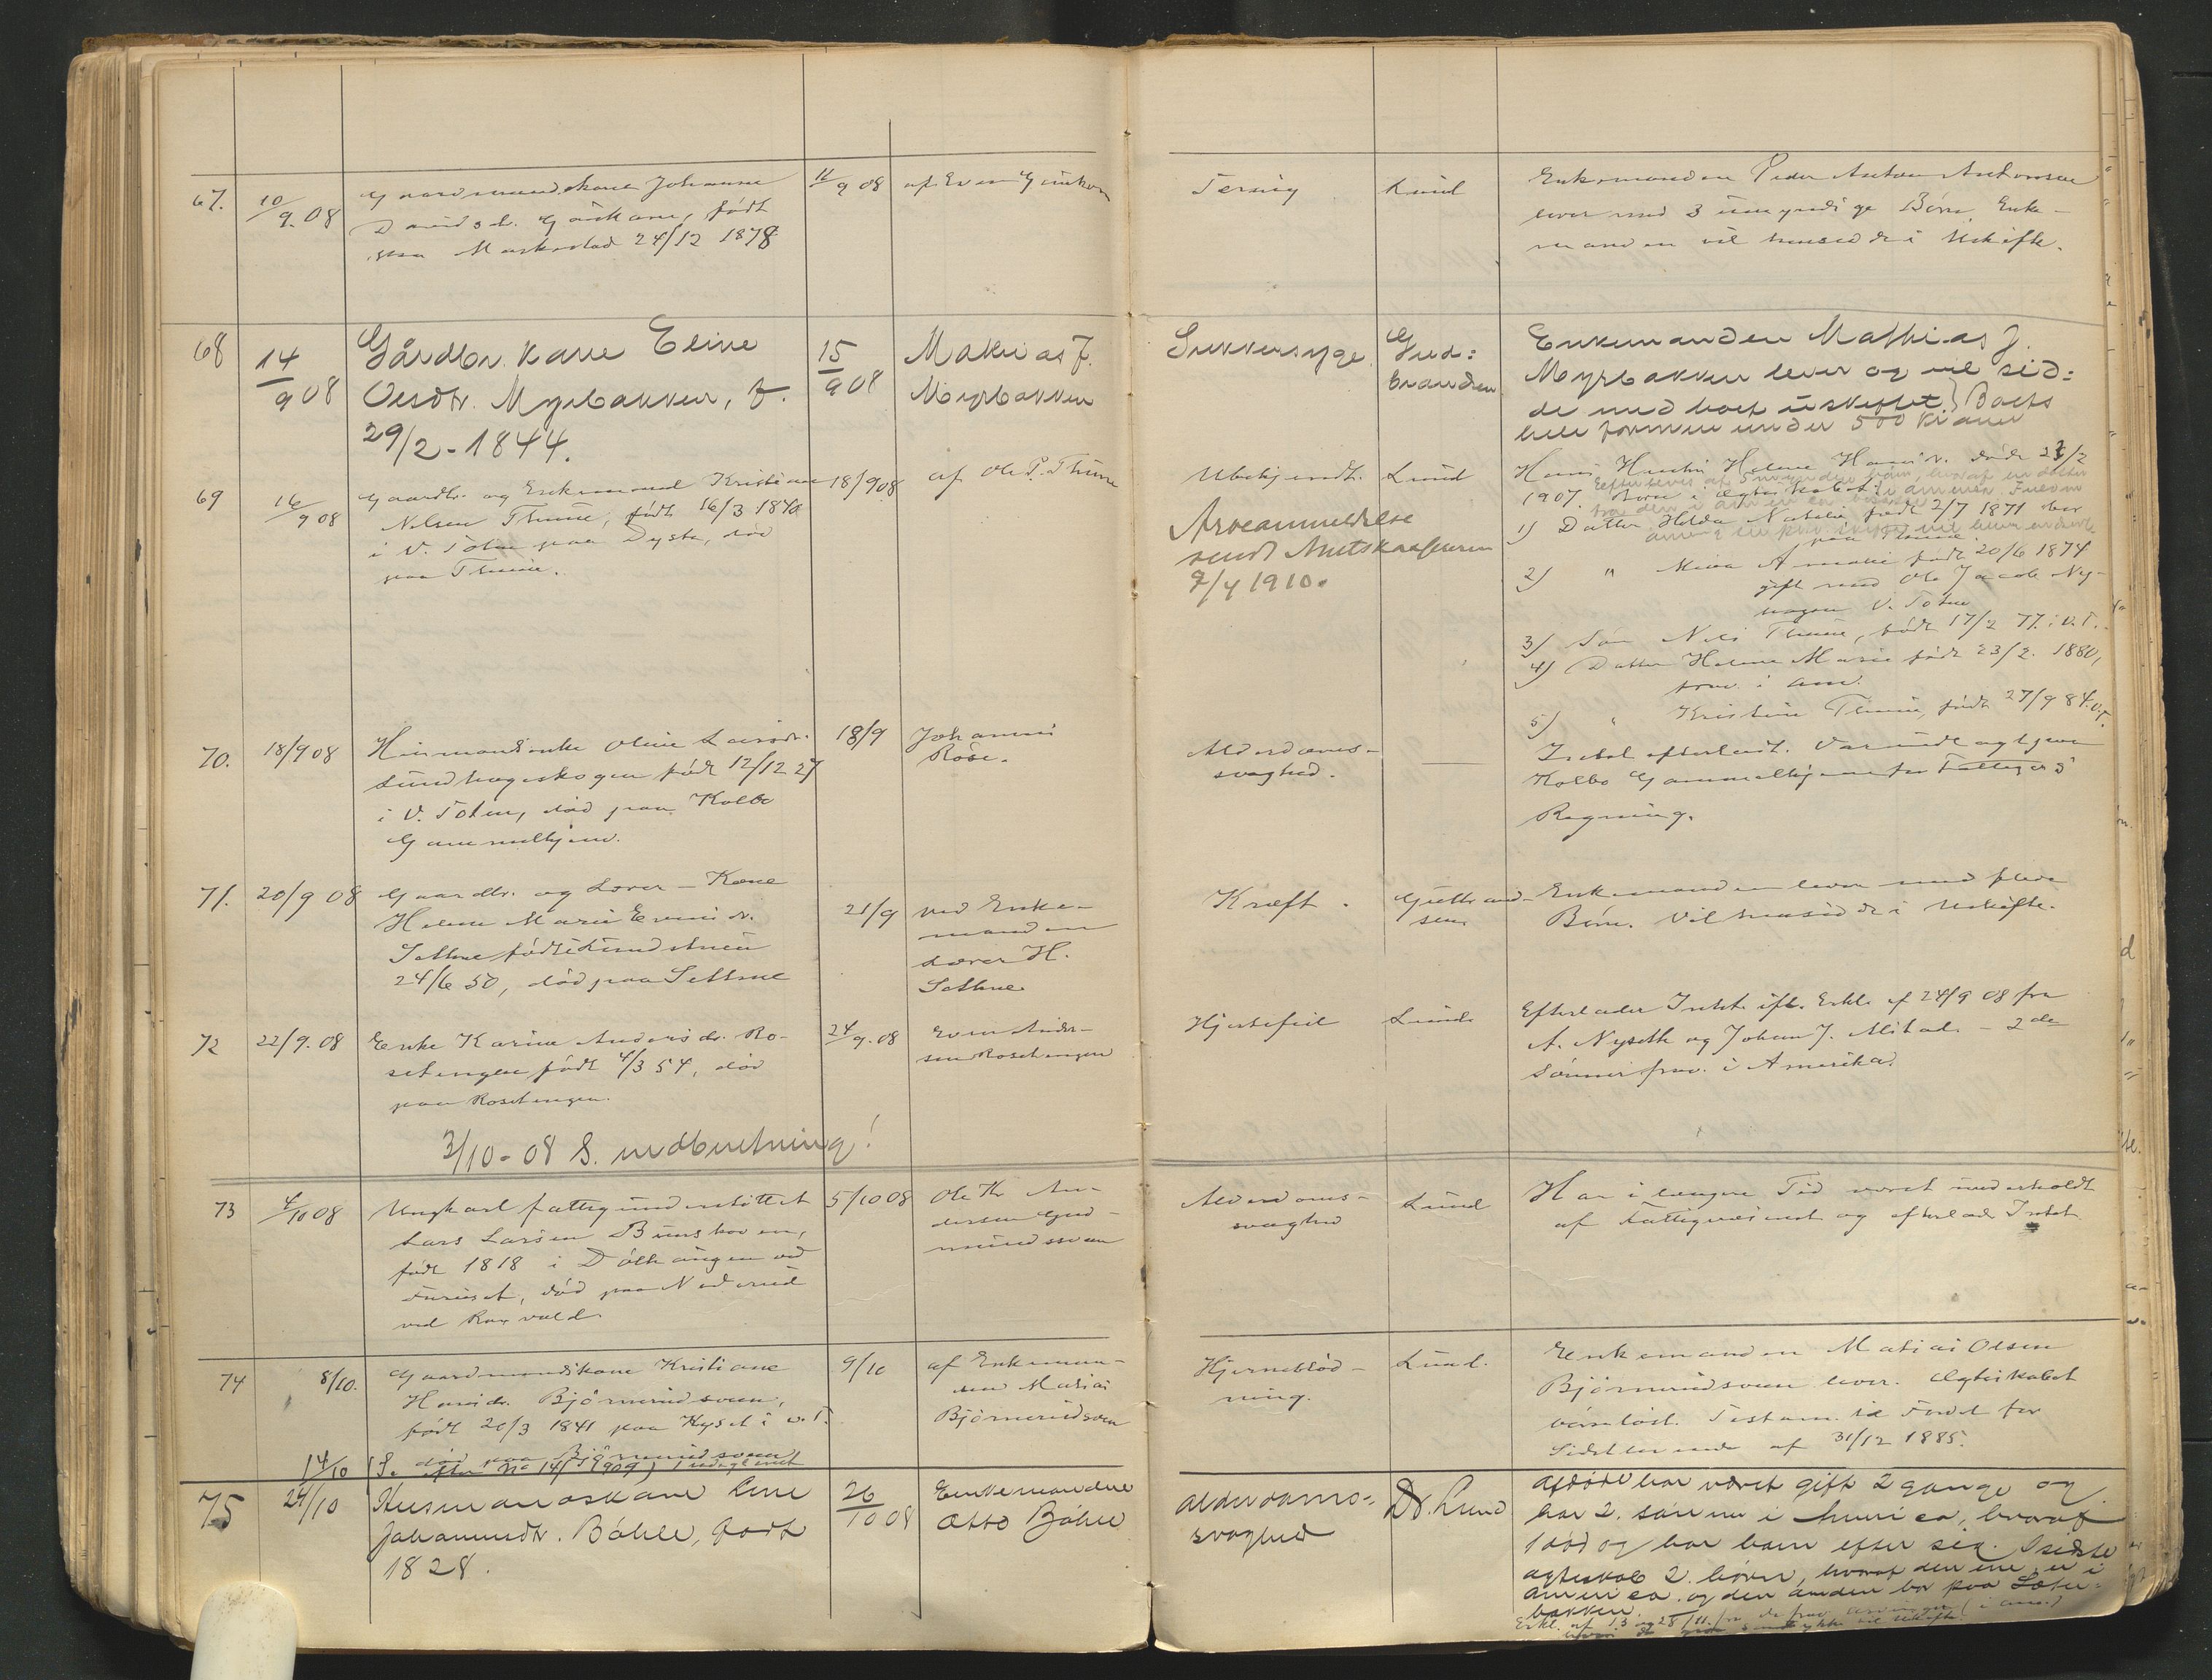 67.
10/9.08
Gaardmandskone Johanne
Davidsd. født
paa 24/12 1878
11/9 08
af Even
Tering
Lund
Enkemanden Peder Anton Antonsen
lever med 3 umyndige Børn. Enke-
manden vil hensidde i Uskifte.
68
14/9 08
Gårdbr. kone Eline
Olsdtr. Myrbakken, f.
29/2-1844.
15/9 08
Mathias J.
Myrbakken
Sukkersyge
Gud:
brandsen
Enkemanden Mathias J.
Myrbakken lever og vil sid:
de med boet uskiftet. Boets
hele formue under 500 kroner
69
16/9 08
Gaardbr. og Enkemand Kristian
Nilsen Thune, født 16/3 1840
i V. Toten paa Dyste, død
paa Thune.
18/9 08
af Ole P. Thune
Ubekjendt.
Lund
Arveanmeldelse
sendt Amtskasseren
2/4 1910.
Hans Hustru Helene Hansd. døde 23/2
1907. Børn i Ægteskabet:
1) Datter Hilda Natalie født 2/7 1871 bor
paa Thune.
2) " Mina Amalie født 20/6 1874
gift med Ole Jacob Ny-
hagen V. Toten
3) Søn Nils Thune, født 17/2 77. i V.T.
4) Datter Helene Marie født 23/2. 1880,
frav. i Am.
5) " Kristine Thune, født 27/9 84. V.T.
70.
18/9 08
Husmandsenke Oline Larsd.
Sundhageskogen født 12/12 27
i V. Toten, død paa Kolbo
Gammelhjem.
18/9
Johannes
Røse.
Alderdoms-
svaghed.
—
Intet efterladt. Var indlagt paa
Kolbo Gammelhjem for Fattigv's
Regning.
71.
20/9 08
Gaardbr. og Lærer-Kone
Helene Marie Evensd.
Sethne født i Sundstuen
24/6 50, død paa Sethne
21/9
ved Enke-
manden
Lærer H.
Sethne
Kræft.
Gulbrand-
sen
Enkemanden lever med flere
Børn. Vil hensidde i Uskifte.
72
22/9.08
Enke Karine Andersd. Ro-
setengen født 4/3 54, død
paa Rosetengen.
24/9.08
Even Ander-
sen Rosetengen
Hjertefeil
Lund
Efterlader Intet ifl. Erkl. af 24/9 08 fra
A. Nyseth og Johan J. Alstad. - 2de
Sønner frav. i Amerika.
3/10-08 S. indberetning!
73
4/10 08
Ungkarl fattigunderstøttet
Lars Larsen
født 1818 i ved
Furuset, død paa Nederud
ved Raufold
5/10 08
Ole Kr. An-
dersen Gud-
mundsveen
Alderdoms-
svaghed
Lund
Har i længere Tid været underholdt
af Fattigvæsenet og efterlader Intet.
74
8/10.
Gaardmandskone Kristiane
Hansd. Bjørnerudsveen,
født 20/3 1841 paa Kyset i V.T.
død paa Bjørnerudsveen
9/10
af Enkeman-
den Matias
Bjørnerudsveen
Hjerneblød-
ning.
Lund.
Enkemanden Matias Olsen
Bjørnerudsveen lever. Ægteskabet
barnløst. Testam. til Fordel for
Længstlevende af 31/12 1885.
14/10
(Se efter No 14/1909)
75
24/10
Husmandskone Lene
Johannesdtr. Bøhle, født
1828.
26/10 08
Enkemanden
Otto Bøhle
Alderdoms:
svaghed
Dr. Lund
Afdøde har været gift 2 gange og
har 2. sønner i Amerika, hvoraf
1 død og har barn efter sig. I sidste
ægteskab 2. børn, hvoraf den ene er i
Amerika og den anden bor paa
bakken.
Erkl. af 13 og 28/11